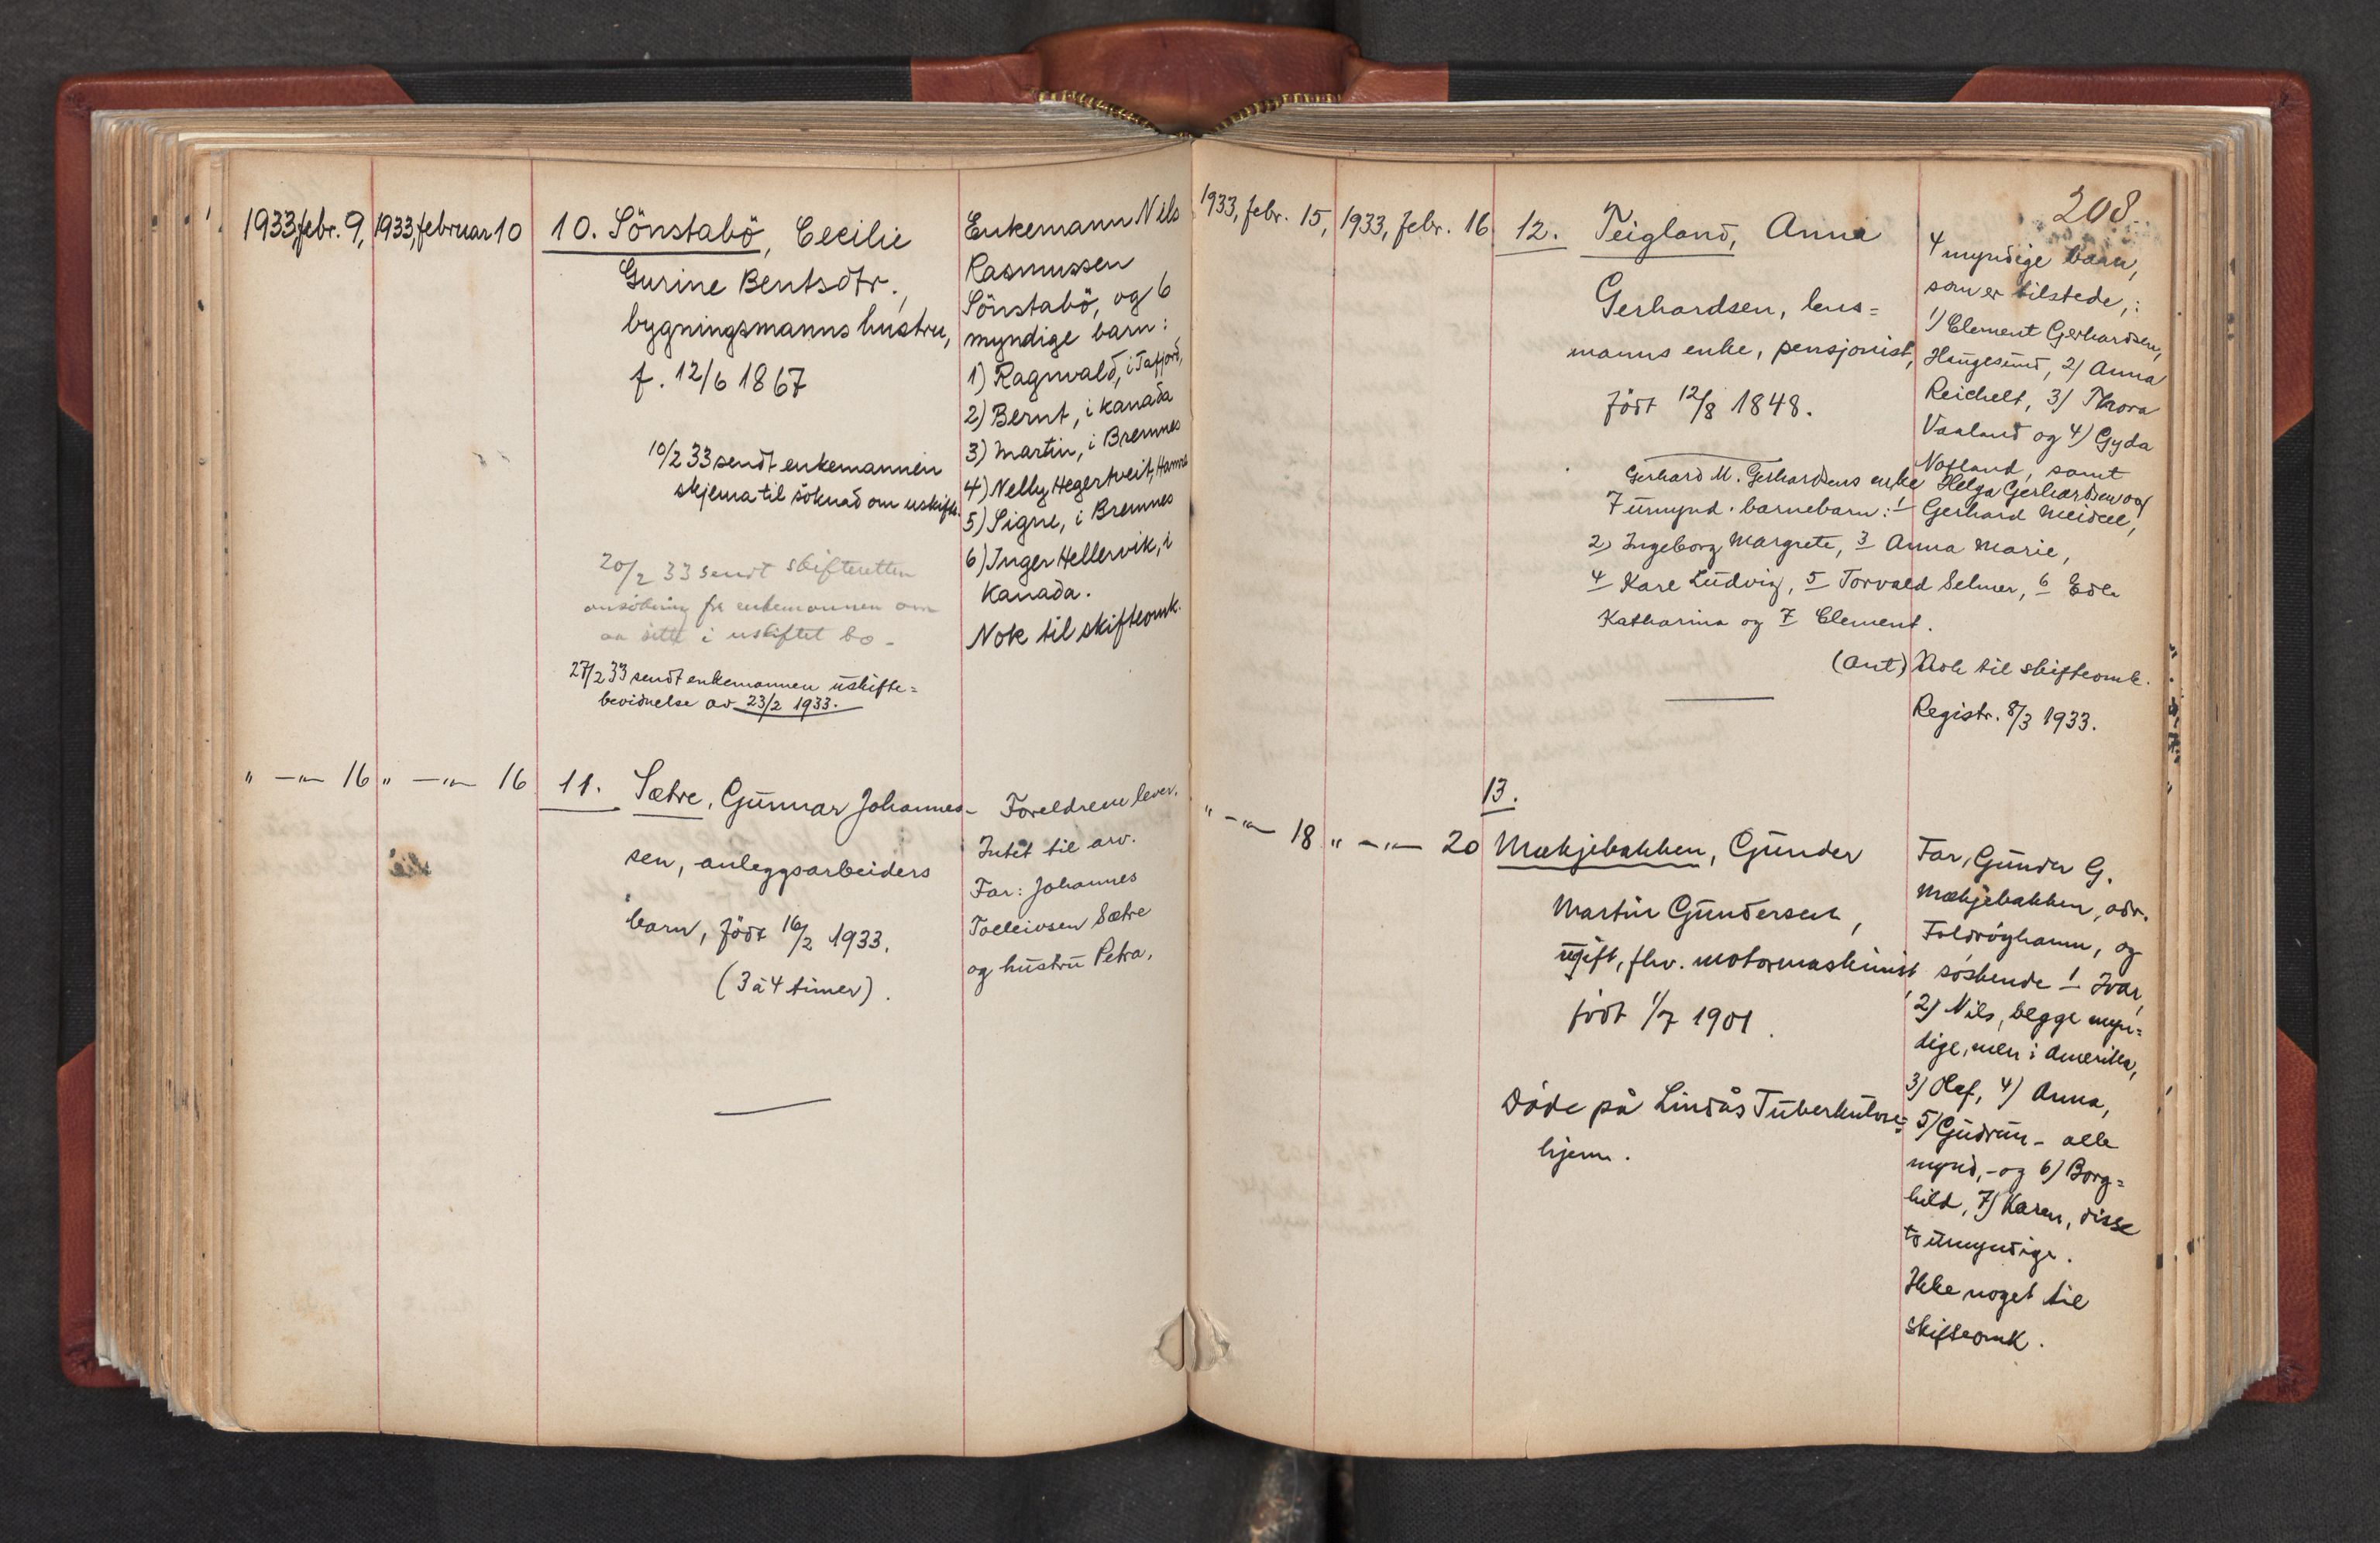 1933, febr. 9, 1933, februar 10 10. Sönstabö, Cecilie
Gurine Bentsdtr.,
bygningsmanns hustru,
f. 12/6 1867
10/2 33 sendt enkemannen
skjema til söknad om uskifte.
20/2 33 sendt skifteretten
ansökning fra enkemannen om
aa sitte i uskiftet bo.
27/2 33 sendt enkemannen uskifte=
bevidnelse av 23/2 1933.
Enkemann Nils
Rasmussen
Sönstabö, og 6
myndige barn:
1) Ragnvald, i Tafjord,
2) Bernt, i Kanada
3) Martin, i Bremnes
4) Nelly Hegertveit, Hamre
5) Signe, i Bremnes
6) Inger Hellervik, i
Kanada.
Nok til skifteomk.
" —"— 16 " —"— 16 11. Sætre, Gunnar Johannes-
sen, anleggsarbeiders
barn, födt 16/2 1933.
(3 à 4 timer).
Foreldrene lever.
Intet til arv.
Far: Johannes
Tolleivsen Sætre
og hustru Petra.
208.
1933, febr. 15, 1933, febr. 16 12. Teigland, Anna
Gerhardsen, lens=
manns enke, pensjonist,
födt 12/8 1848.
4 myndige barn,
som er tilstede,:
1) Clement Gerhardsen,
Haugesund, 2) Anna
Reichelt, 3) Thora
Vaaland og 4) Gyda
Notland, samt
Gerhard M. Gerhardsens enke Helga Gerhardsen og
7 umynd. barnebarn: 1 Gerhard Meidell,
2) Ingeborg Margrete, 3 Anna Marie,
4 Karl Ludvig, 5 Torvald Selmer, 6 Edle
Katharina og 7 Clement.
(ant) Nok til skifteomk.
Registr. 8/3 1933.
13.
" —"— 18 " —"— 20 Mækjebakken, Gunder
Martin Gundersen,
ugift, fhv. motormaskinist,
födt 1/7 1901.
Döde på Lindås Tuberkulose=
hjem.
Far, Gunder G.
Mækjebakken, adr.
Foldröyhamn, og
söskende 1 Ivar,
2) Nils, begge myn=
dige, men i Amerika,
3) Olaf, 4) Anna,
5) Gudrun - alle
mynd,- og 6) Borg=
hild, 7) Karen, disse
to umyndige.
Ikke noget til
skifteomk.